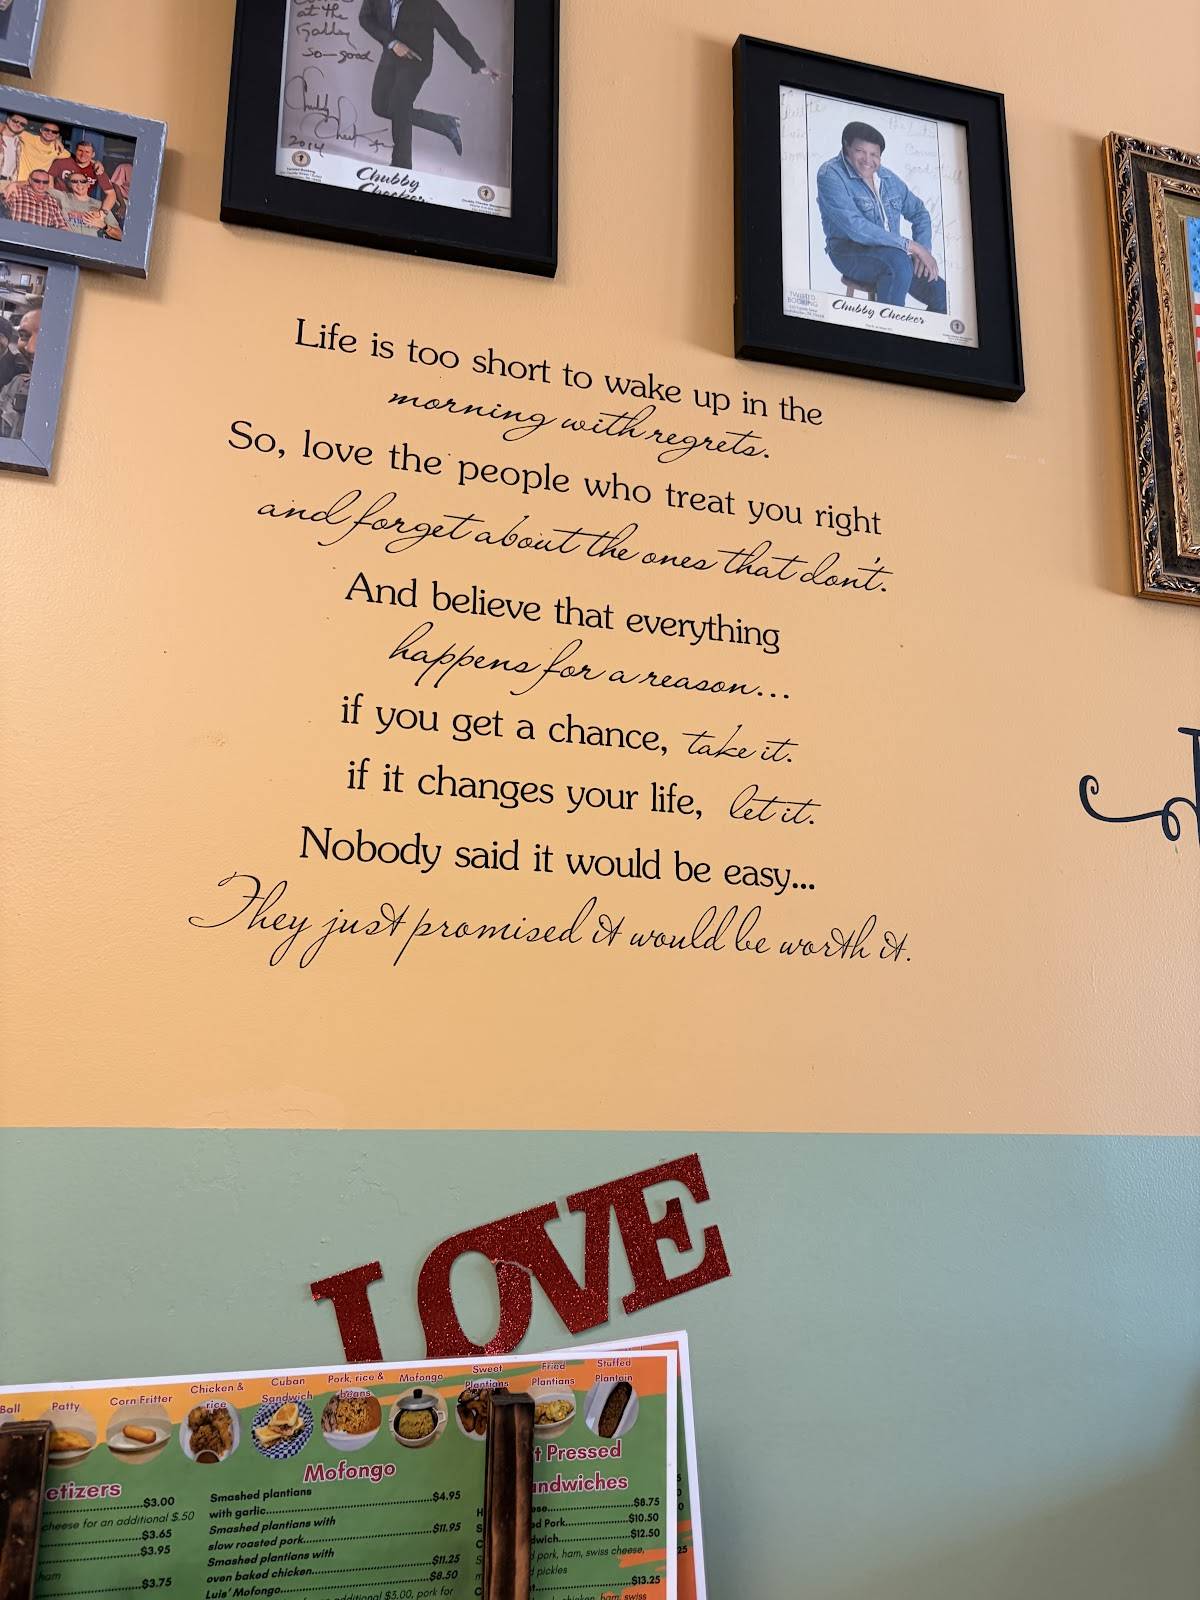 at the
Galley
so-good
Chubby
Checker
2014
Chubby
Checker
TWISTED
BOOKING
Chubby Checker
Life is too short to wake up in the
morning with regrets.
So, love the people who treat you right
and forget about the ones that don't.
And believe that everything
happens for a reason...
if you get a chance, take it.
if it changes your life, let it.
Nobody said it would be easy...
They just promised it would be worth it.
LOVE
Ball
Patty
Corn Fritter
Chicken &
rice
Cuban
Sandwich
Pork, rice &
beans
Mofongo
Sweet
Plantians
Fried
Plantians
Stuffed
Plantain
etizers
$3.00
cheese for an additional $.50
$3.65
$3.95
ham
$3.75
Mofongo
Smashed plantians
with garlic $4.95
Smashed plantians with
slow roasted pork $11.95
Smashed plantians with
oven baked chicken $11.25
Luis' Mofongo $8.50
additional $3.00, pork for
t Pressed
andwiches
ese $8.75
ed Pork $10.50
dwich $12.50
d pork, ham, swiss cheese,
d pickles
t $13.25
chicken, ham, swiss